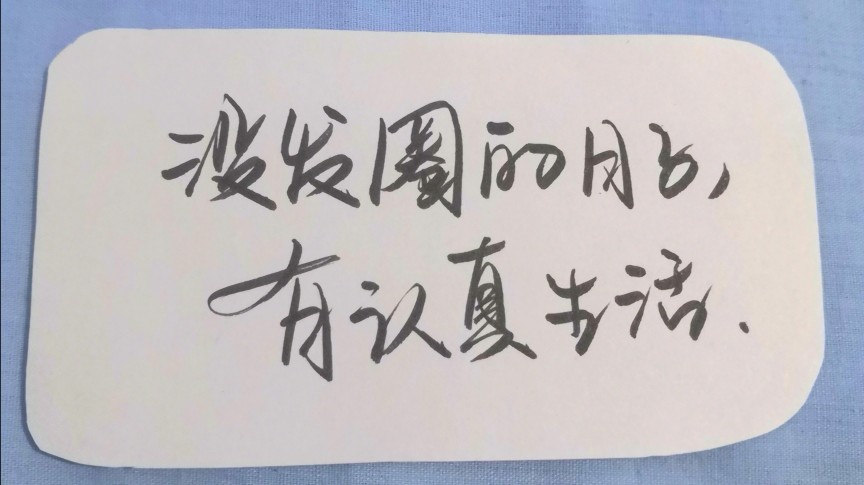 没发圈的日子,
有认真生活.